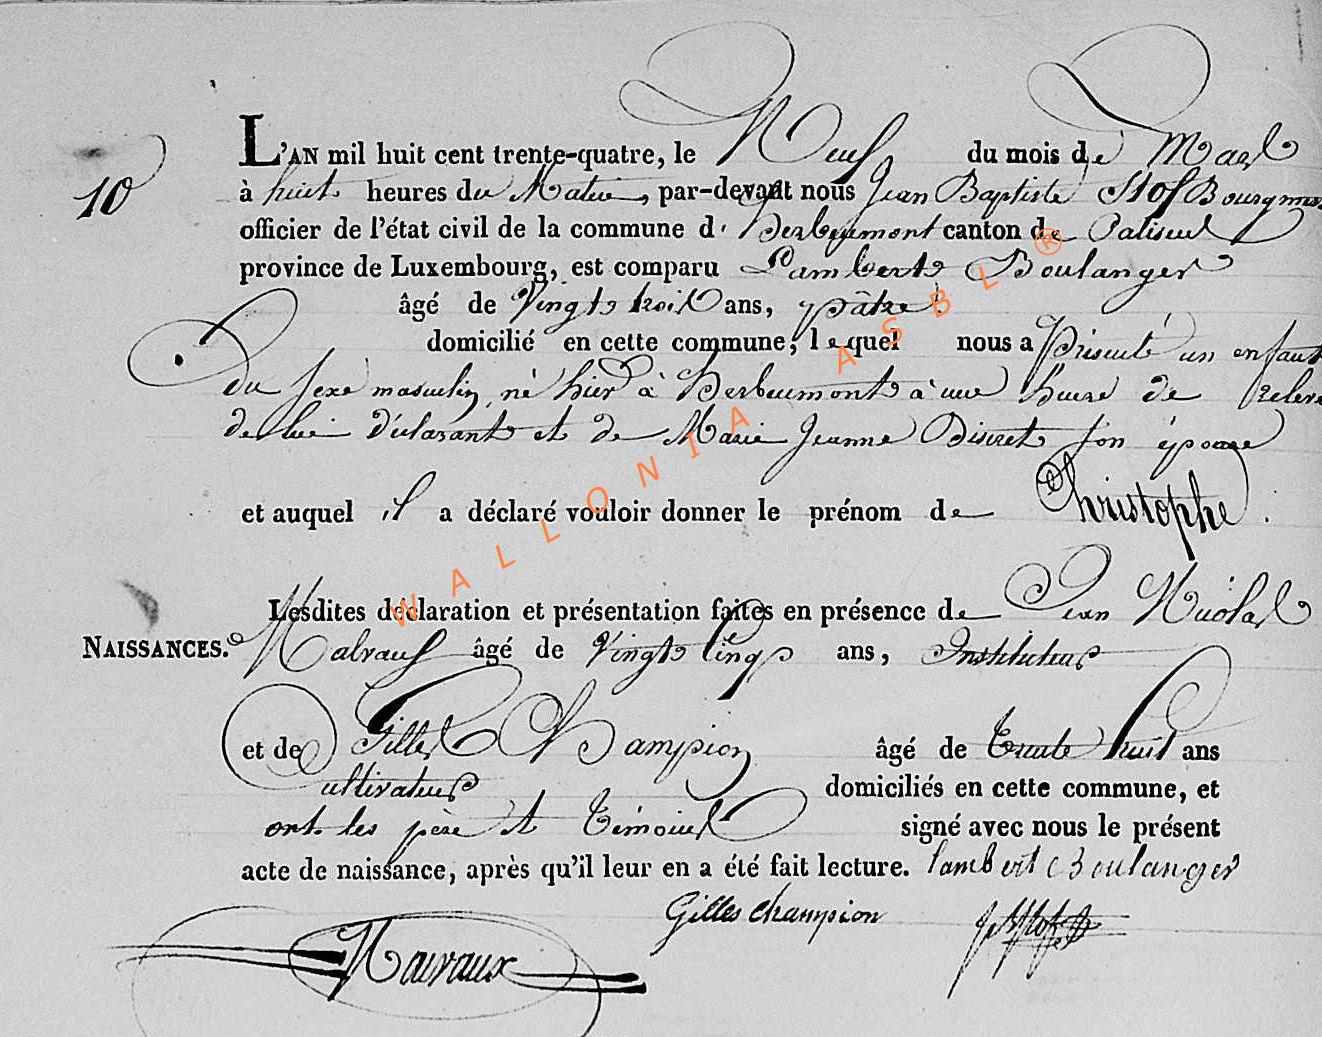 L'AN mil huit cent trente-quatre, le Neuf du mois de Mars
10
à huit heures du Matin, par-devant nous Jean Baptiste Stof Bourgmes
officier de l'état civil de la commune d' Herbeumont canton de Paliseul
province de Luxembourg, est comparu Lambert Boulanger
âgé de Vingt trois ans, pâtre
domicilié en cette commune, lequel nous a Présenté un enfant
du sexe masculin, né hier à Herbeumont à une heure de
de lui déclarant et de Marie Jeanne Discret son épouse
et auquel il a déclaré vouloir donner le prénom de Christophe.
Lesdites déclaration et présentation faites en présence de Jean Nicolas
NAISSANCES. Malvaux âgé de Vingt Cinq ans, Instituteur
et de Gilles Champion âgé de Trente huit ans
Cultivateur domiciliés en cette commune, et
ont les père et Témoins signé avec nous le présent
acte de naissance, après qu'il leur en a été fait lecture. lambert Boulanger
Gilles champion
Malvaux
WALLONIA ASBL ®